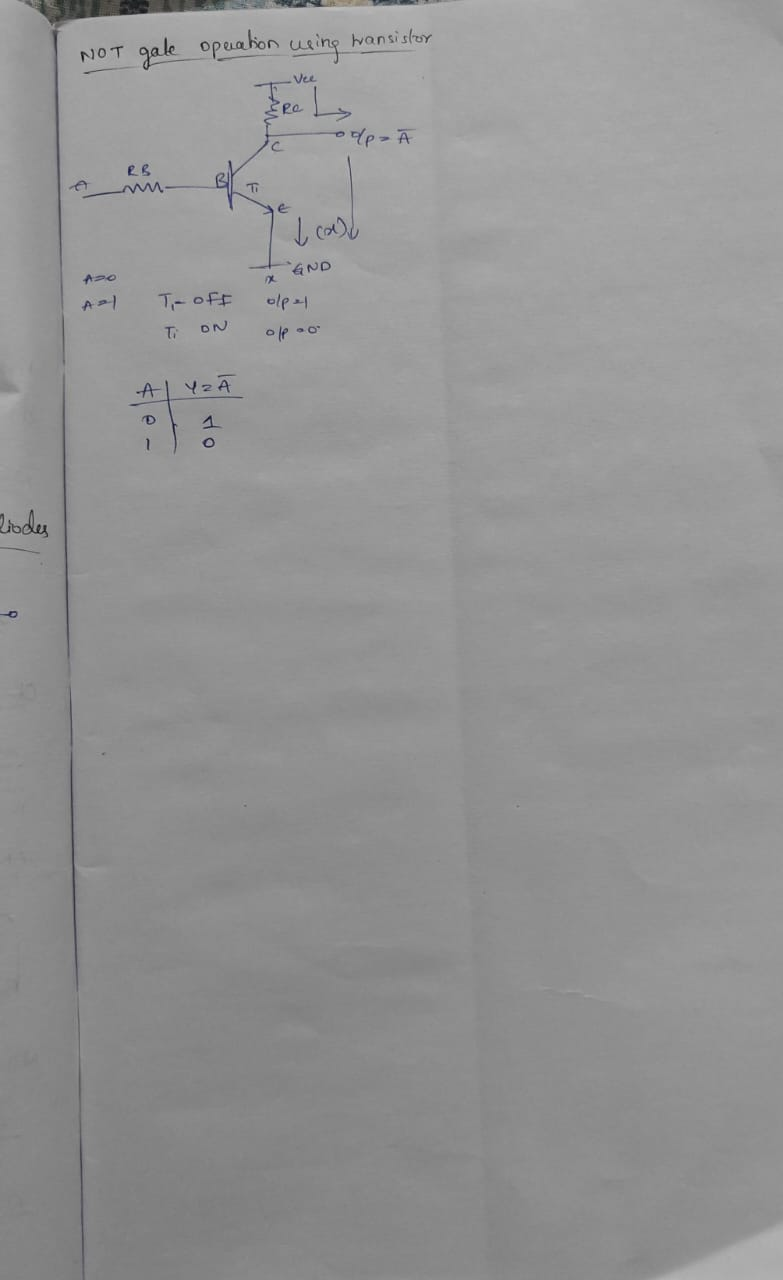 NOT gate operation using transistor
Vcc
RC
o/p = A̅
C
RB
A
B
T1
E
GND
A=0
A=1 T1- OFF o/p=1
T1 ON o/p=0
A Y=A̅
0 1
1 0